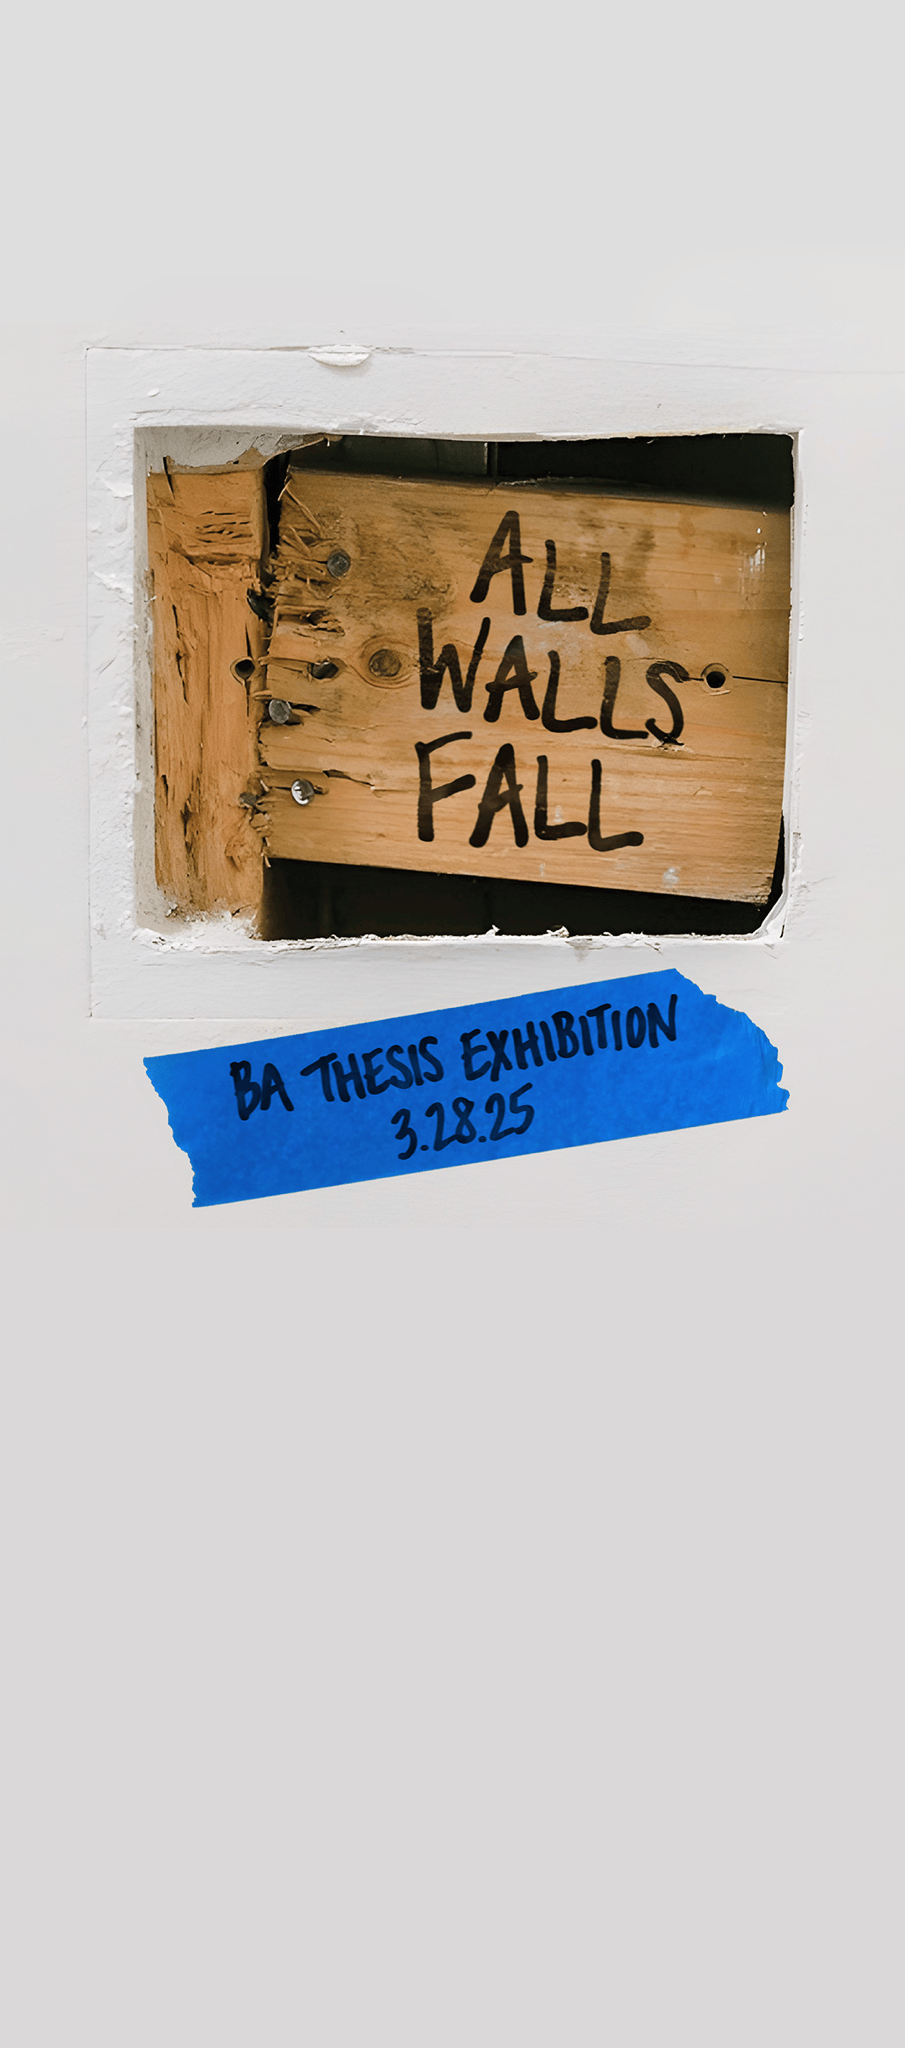 ALL
WALLS
FALL
BA THESIS EXHIBITION
3.28.25